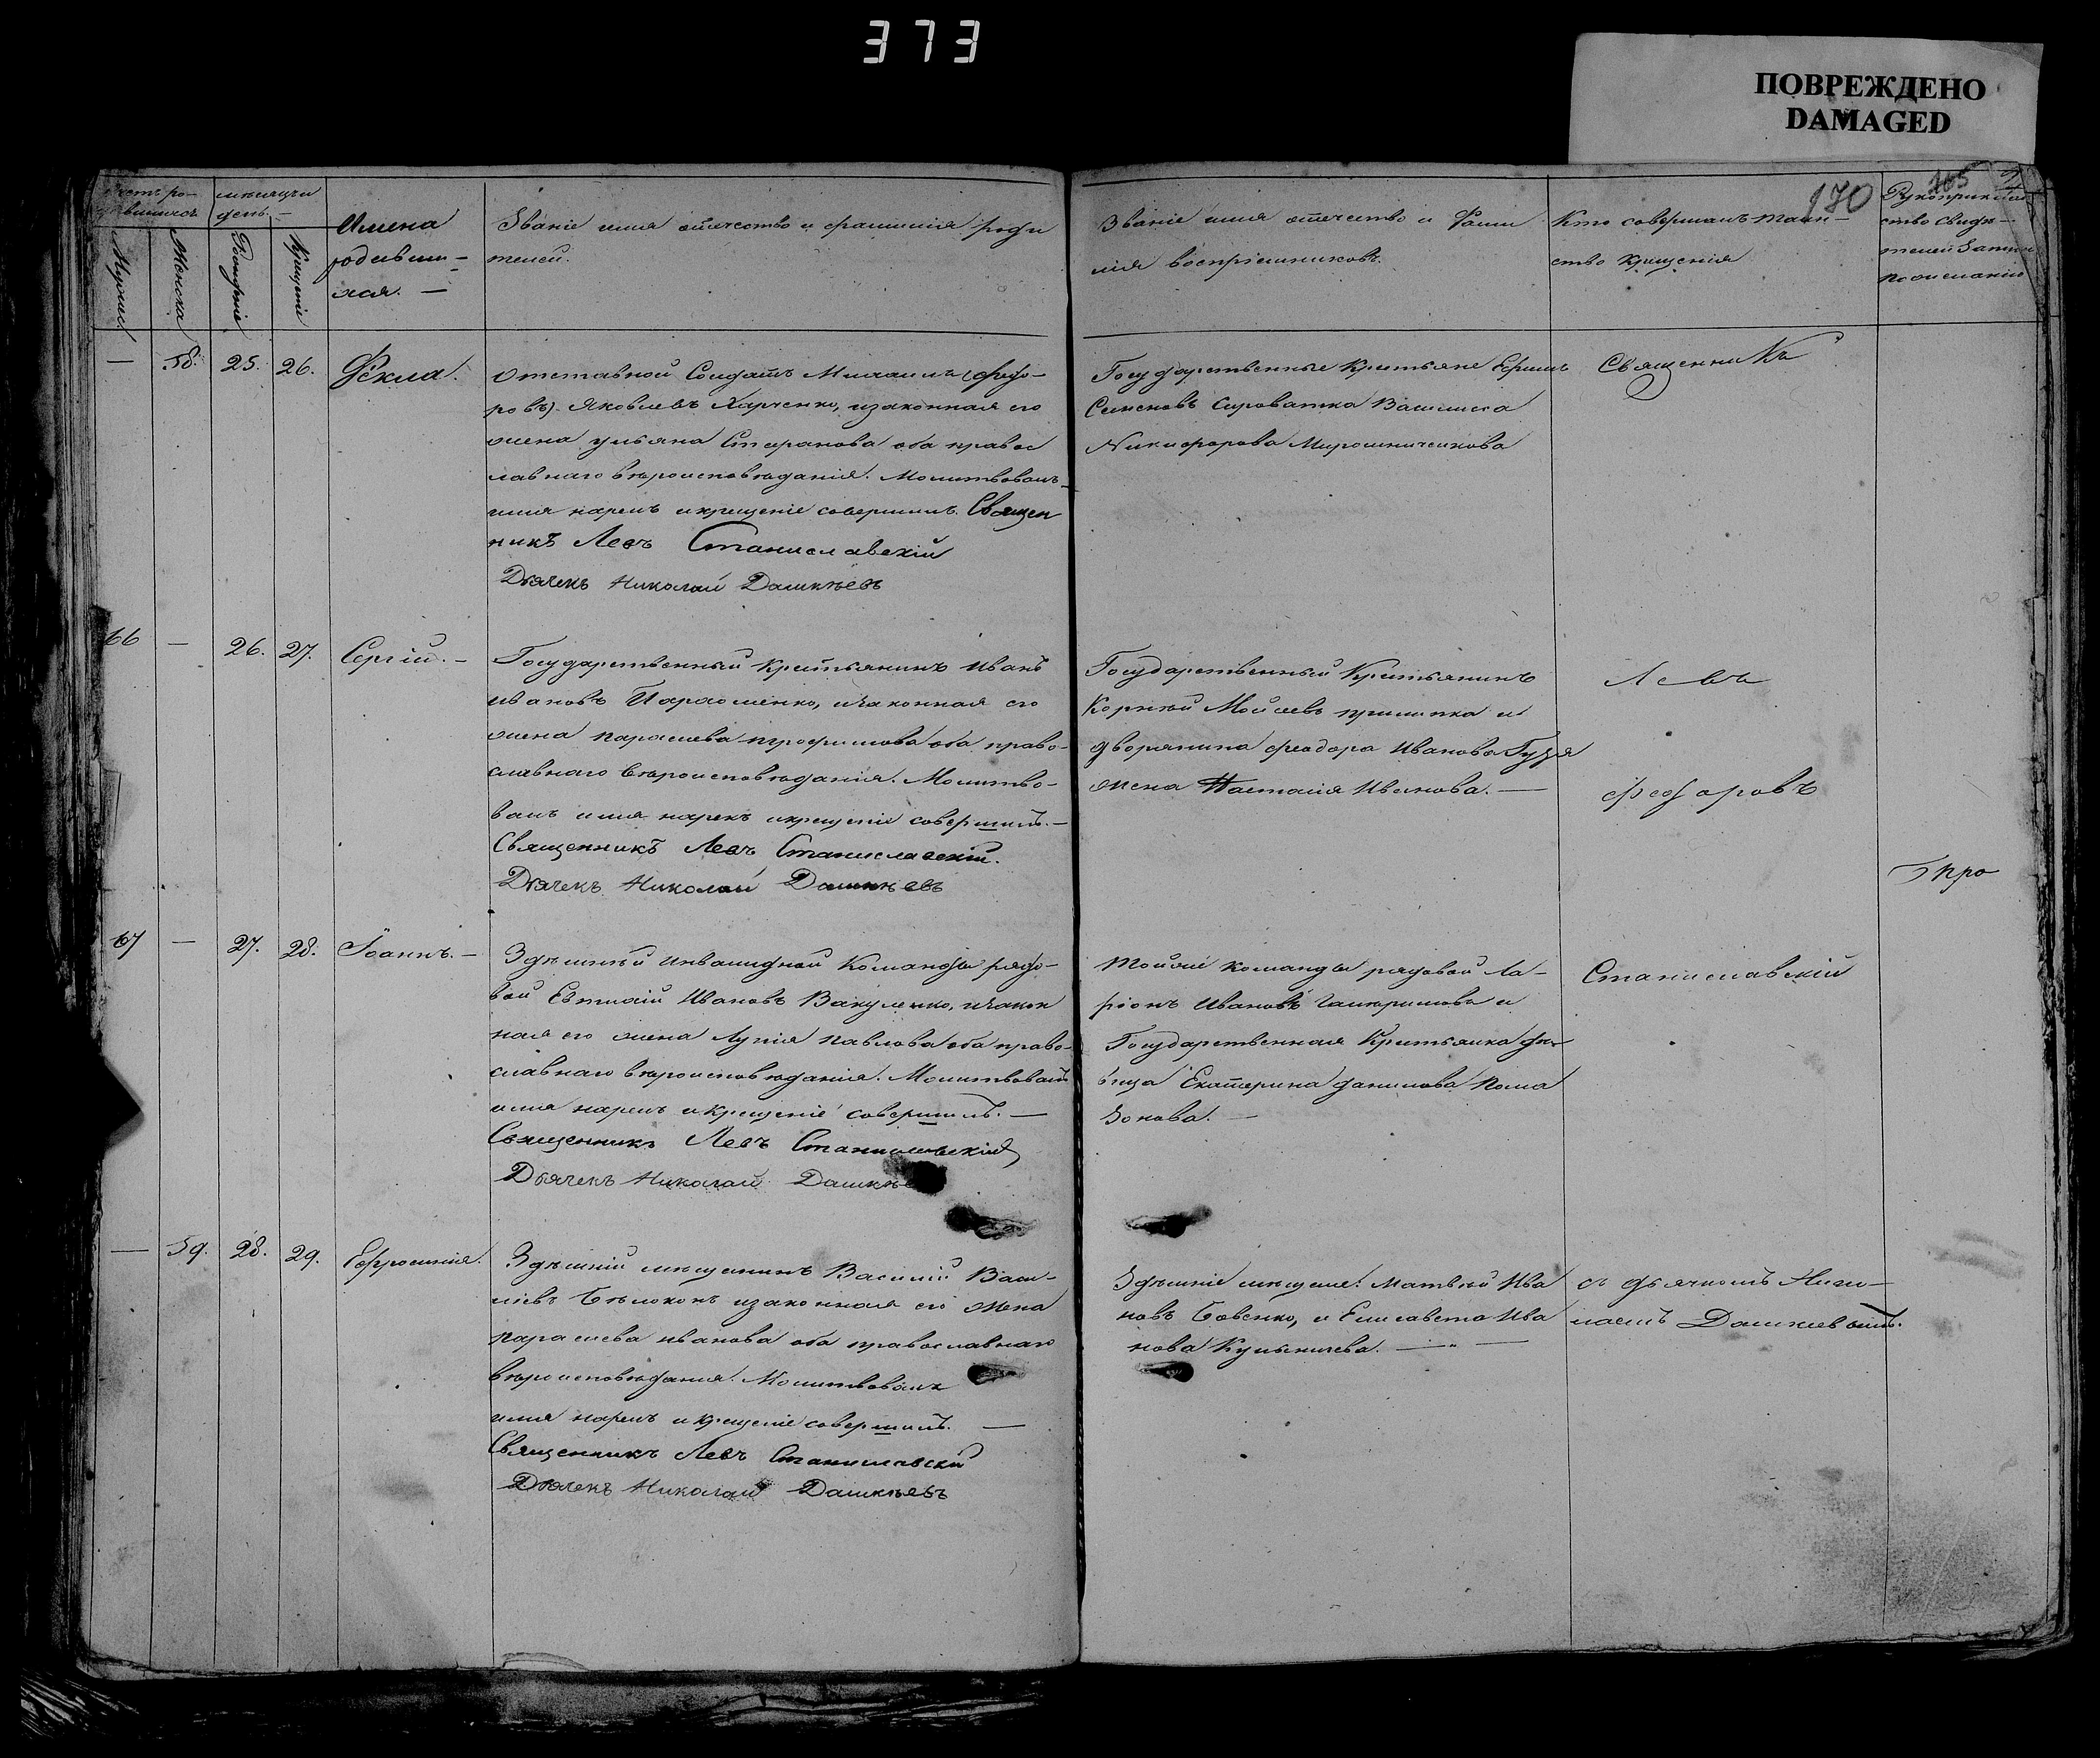 373
ПОВРЕЖДЕНО
DAMAGED
170
165
мѣсяцъ и
день. —
Мужес
Женска
Рожденіе
Крщеніе
Имена
родивши-
хся. —
Званіе имя отечество и фамилія роди
телей.
Званіе имя отечество и Фами
лія воспріемниковъ.
Кто совершалъ таин-
ство крещенія
Рукоприклад
ство свиде-
телей записи
по желанію
— 58. 25. 26. Фёкла.
Отставной Солдатъ Михаилъ (Федо-
ровъ) Яковлевъ Харченко, изаконная его
жена Ульяна Стефанова оба правос
лавнаго вѣроисповѣданія. Молитвовалъ
имя нарекъ и крещеніе совершилъ. Священ
никъ Левъ Станиславскій
Дьячекъ Николай Дашкѣевъ
Государственные Крестьяне Ефимъ
Семеновъ Сироватка Василиса
Никифорова Мирошниченкова
Священникъ
66 — 26. 27. Сергій. —
Государственный Крестьянинъ Иванъ
Ивановъ Пархоменко, изаконная его
жена Параскева Трофимова оба право-
славнаго вѣроисповѣданія. Молитво-
валъ имя нарекъ и крещеніе совершилъ. —
Священникъ Левъ Станиславскій.
Дьячекъ Николай Дашкѣевъ
Государственный Крестьянинъ
Корнѣй Мойсеевъ и
дворянина Феодора Иванова Гузя
жена Настасія Иванова. —
Левъ
Федоровъ
67 — 27. 28. Іоаннъ. —
Здѣшнѣй Инвалидной Команды рядо-
вой Евтихій Ивановъ Вакуленко, изакон
ная его жена Лукія Павлова оба право-
славнаго вѣроисповѣданія. Молитвовалъ
имя нарекъ и крещеніе совершилъ. —
Священникъ Левъ Станиславскій
Дьячекъ Николай Дашкѣе
Тойже команды рядовой Ла-
ріонъ Ивановъ и
Государственная Крестьянка дѣ-
вица Екатерина Данилова Пома
зонова. —
Станиславскій
— 59. 28. 29. Ефросинія.
Здѣшній мѣщанинъ Василій Васи-
ліевъ Бѣлоконъ изаконная его жена
Параскева Иванова оба православнаго
вѣроисповѣданія. Молитвовалъ
имя нарекъ и крещеніе совершилъ. —
Священникъ Левъ Станиславскій
Дьячекъ Николай Дашкѣевъ
Здѣшніе мѣщане: Матвѣй Ива
новъ Бовенко, и Елисавета Ива
нова Кулиничева. —
съ дьячкомъ Нико-
лаемъ Дашкіевымъ.